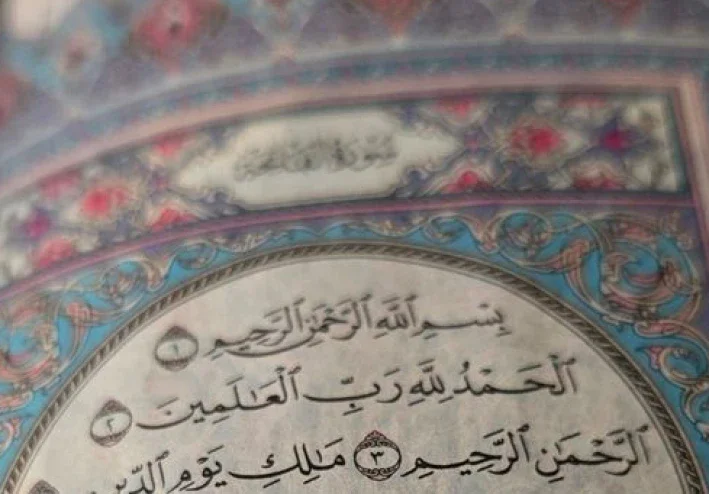 سُورَةُ الفَاتِحَةِ
بِسْمِ ٱللَّهِ ٱلرَّحْمَٰنِ ٱلرَّحِيمِ ١
ٱلْحَمْدُ لِلَّهِ رَبِّ ٱلْعَٰلَمِينَ ٢
ٱلرَّحْمَٰنِ ٱلرَّحِيمِ ٣ مَٰلِكِ يَوْمِ ٱلدِّينِ